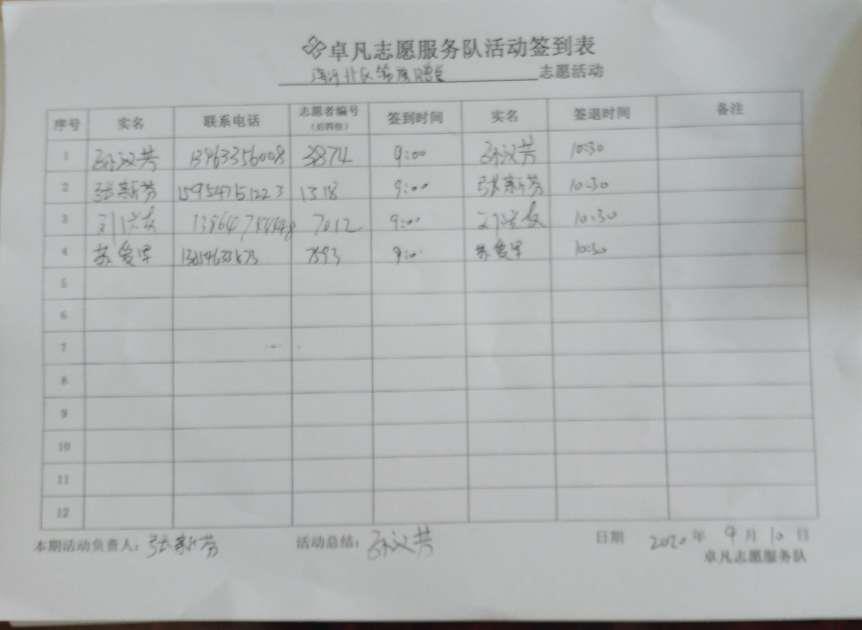 卓凡志愿服务队活动签到表
志愿活动
序号 实名 联系电话 志愿者编号（后四位） 签到时间 实名 签退时间 备注
1 孙汉芳 13963356008 3874 9:00 孙汉芳 10:30
2 张新芳 15954751223 1318 9:00 张新芳 10:30
3 7012 9:00 10:30
4 苏爱军 7593 9:00 苏爱军 10:30
5
6
7
8
9
10
11
12
本期活动负责人：张新芳 活动总结：孙汉芳 日期 2020年9月10日
卓凡志愿服务队